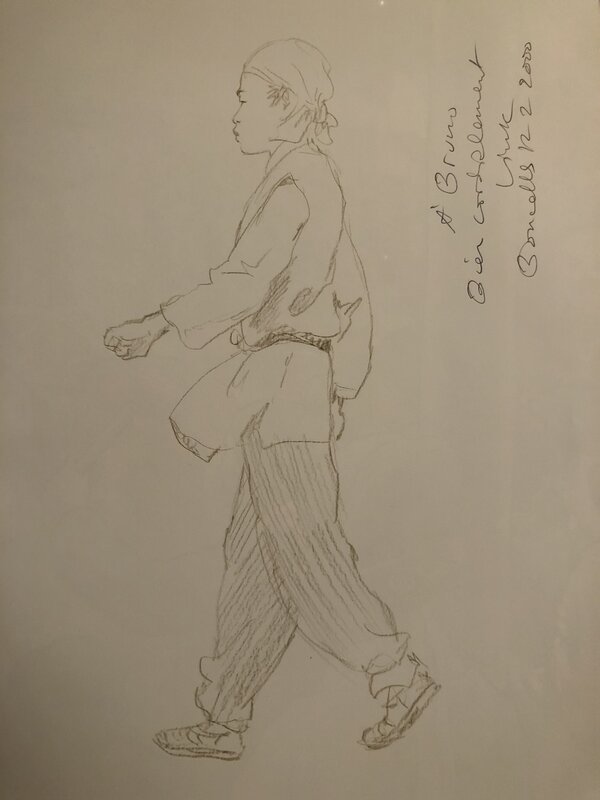 A Bruno
Bien cordialement
Vink
Boncelles 12 2 2000